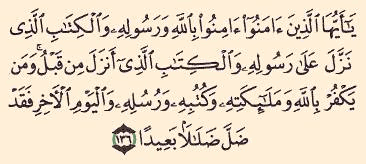 يَٰٓأَيُّهَا ٱلَّذِينَ ءَامَنُوٓا۟ ءَامِنُوا۟ بِٱللَّهِ وَرَسُولِهِۦ وَٱلْكِتَٰبِ ٱلَّذِى
نَزَّلَ عَلَىٰ رَسُولِهِۦ وَٱلْكِتَٰبِ ٱلَّذِىٓ أَنزَلَ مِن قَبْلُ ۚ وَمَن
يَكْفُرْ بِٱللَّهِ وَمَلَٰٓئِكَتِهِۦ وَكُتُبِهِۦ وَرُسُلِهِۦ وَٱلْيَوْمِ ٱلْءَاخِرِ فَقَدْ
ضَلَّ ضَلَٰلًۢا بَعِيدًا ١٣٦